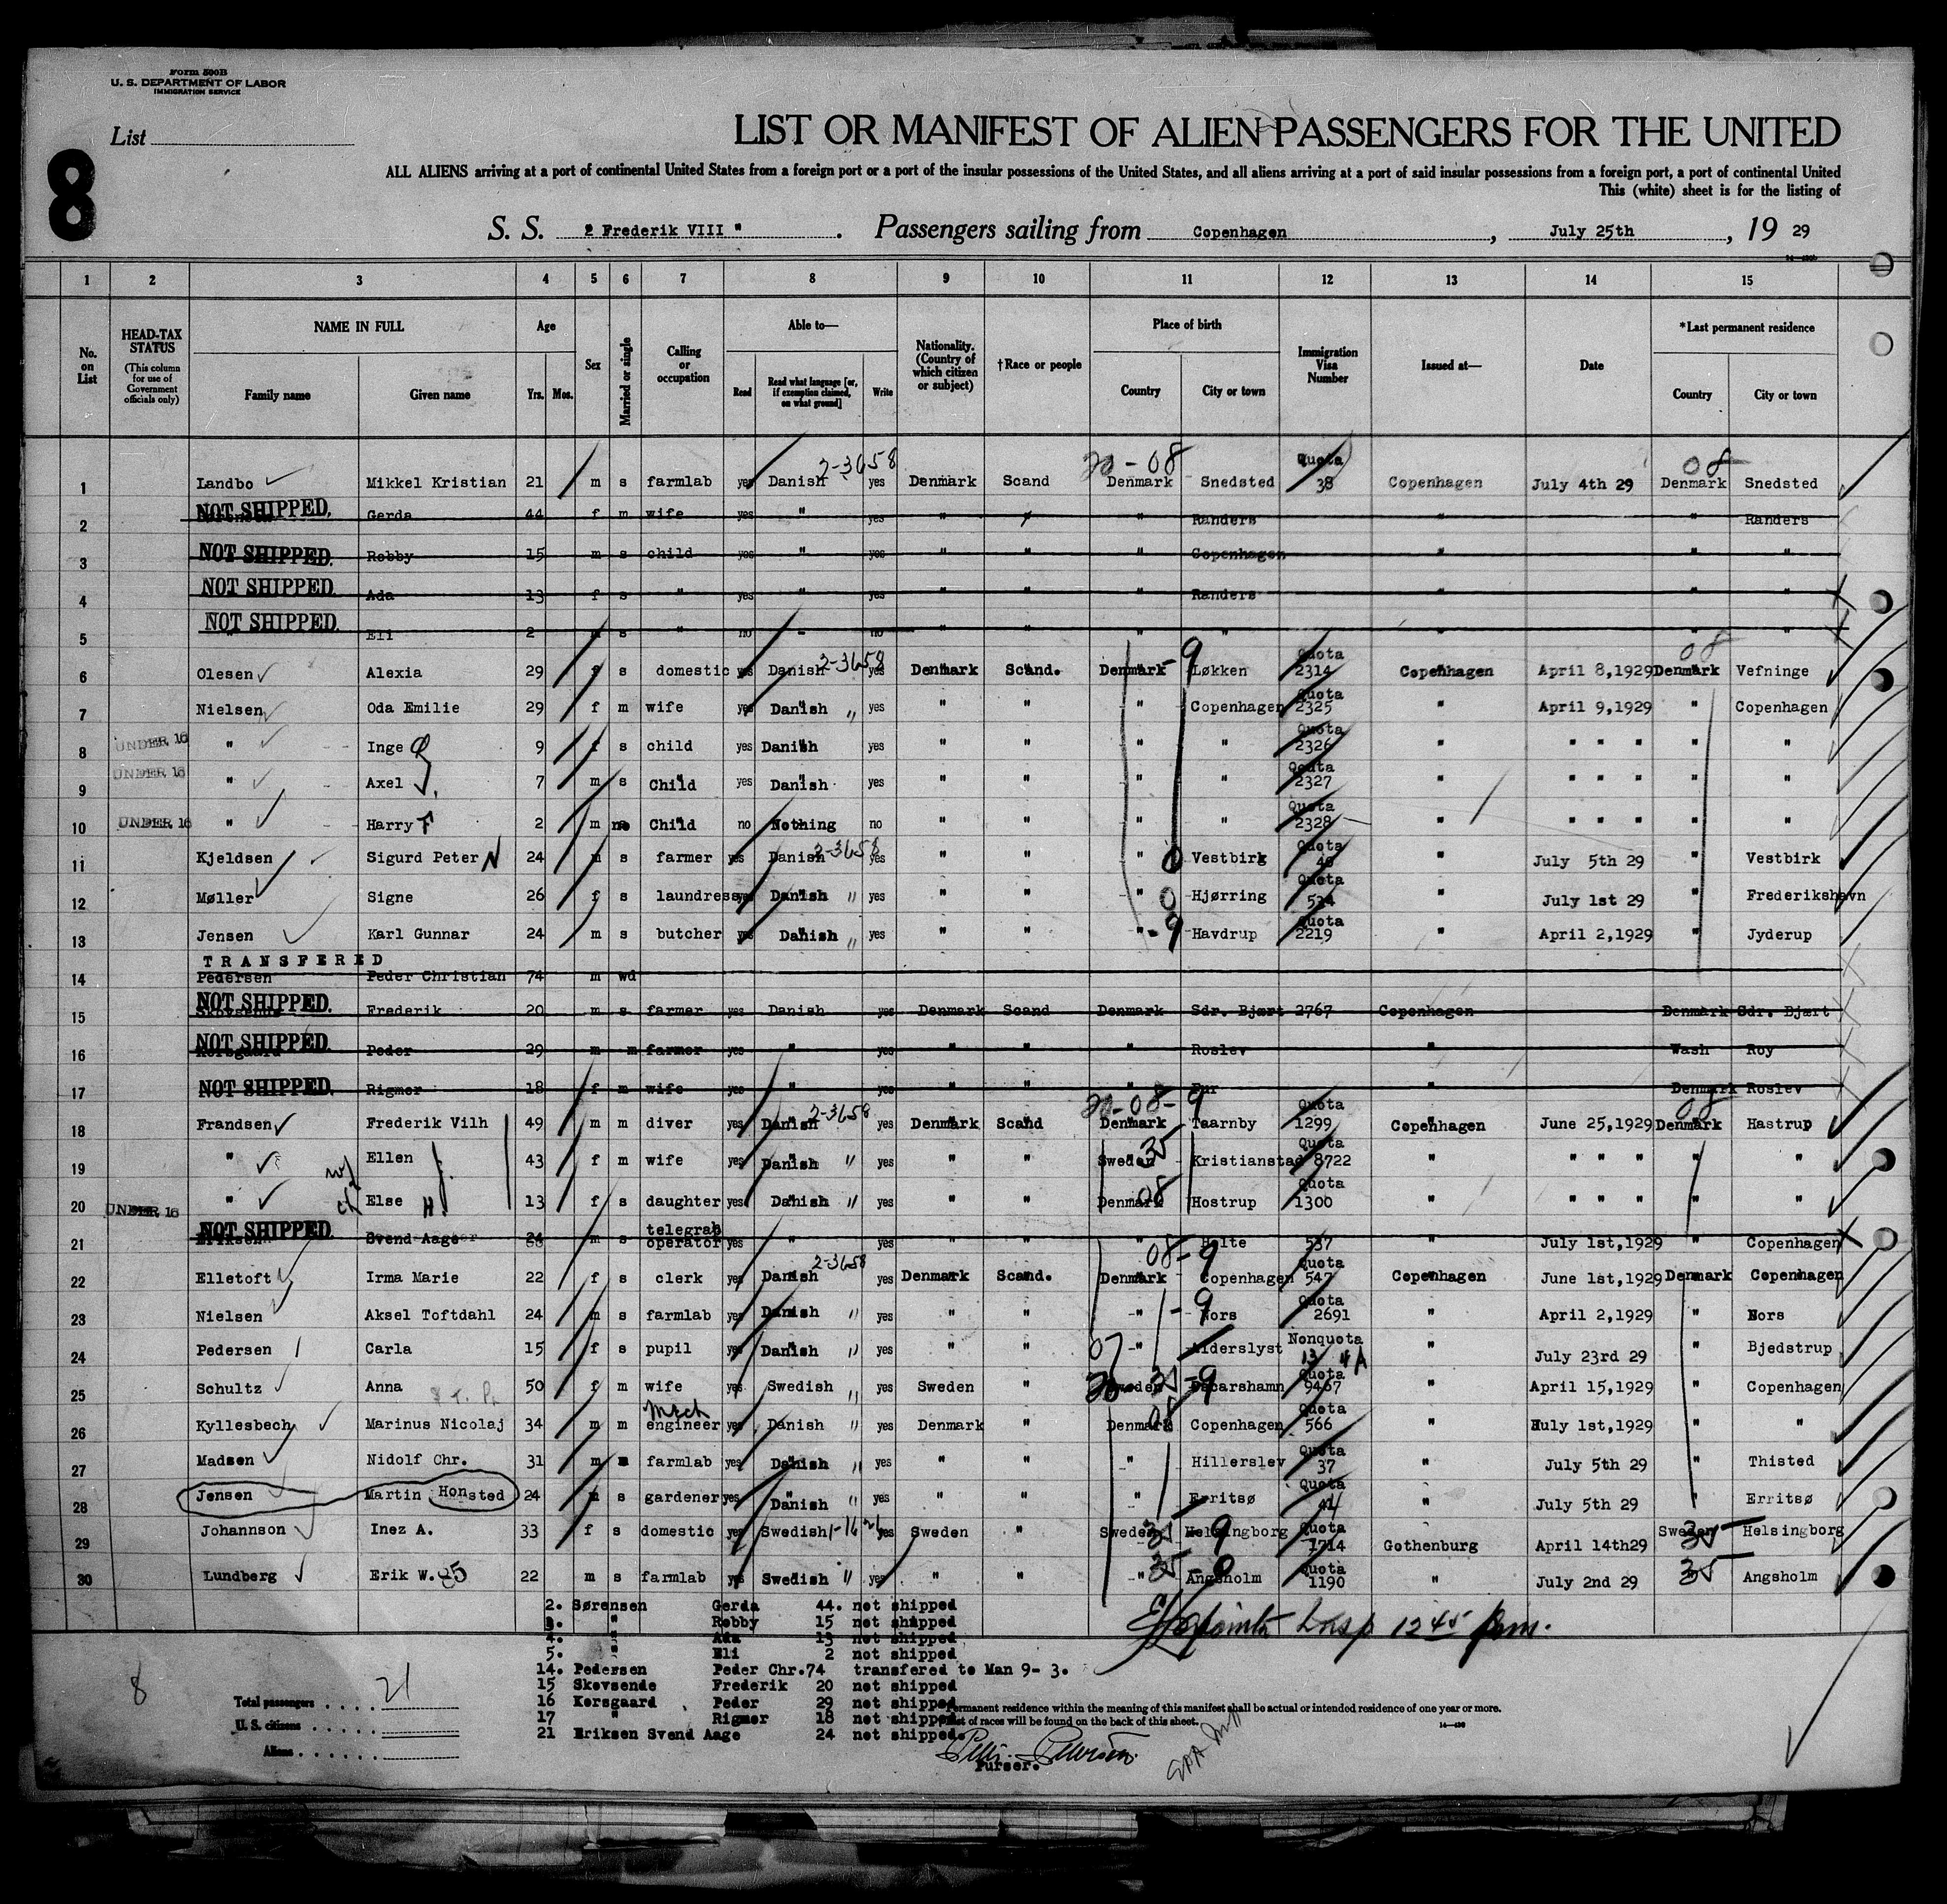 Form 500B
U. S. DEPARTMENT OF LABOR
IMMIGRATION SERVICE
List
8
LIST OR MANIFEST OF ALIEN PASSENGERS FOR THE UNITED
ALL ALIENS arriving at a port of continental United States from a foreign port or a port of the insular possessions of the United States, and all aliens arriving at a port of said insular possessions from a foreign port, a port of continental United
This (white) sheet is for the listing of
S. S. " Frederik VIII " . Passengers sailing from Copenhagen , July 25th , 19 29
1 2 3 4 5 6 7 8 9 10 11 12 13 14 15
No. on List
HEAD-TAX STATUS
(This column for use of Government officials only)
NAME IN FULL
Family name
Given name
Age
Yrs. Mos.
Sex
Married or single
Calling or occupation
Able to—
Read
Read what language [or, if exemption claimed, on what ground]
Write
Nationality. (Country of which citizen or subject)
†Race or people
Place of birth
Country
City or town
Immigration Visa Number
Issued at—
Date
*Last permanent residence
Country
City or town
1 Landbo Mikkel Kristian 21 m s farmlab yes Danish 2-3658 yes Denmark Scand 20-08 Denmark Snedsted Quota 38 Copenhagen July 4th 29 08 Denmark Snedsted
2 NOT SHIPPED. Gerda 44 f m wife yes " yes " " " Randers " " Randers
3 NOT SHIPPED. Robby 15 m s child yes " yes " " " Copenhagen " " "
4 NOT SHIPPED. Ada 13 f s " yes " yes " " " Randers " " "
5 NOT SHIPPED. " Eli 2 s " no - no " " " " " " "
6 Olesen Alexia 29 f s domestic yes Danish 2-3658 yes Denmark Scand. Denmark -9 Løkken Quota 2314 Copenhagen April 8,1929 08 Denmark Vefninge
7 Nielsen Oda Emilie 29 f m wife yes Danish " yes " " " Copenhagen Quota 2325 " April 9,1929 " Copenhagen
8 UNDER 16 " Inge 9 f s child yes Danish yes " " " " Quota 2326 " " " " " "
9 UNDER 16 " Axel 7 m s Child yes Danish yes " " " " Quota 2327 " " " " " "
10 UNDER 16 " Harry 2 m Child no Nothing no " " " " Quota 2328 " " " " " "
11 Kjeldsen Sigurd Peter N 24 m s farmer yes Danish 2-3658 yes " " " 0 Vestbirk Quota 40 " July 5th 29 " Vestbirk
12 Møller Signe 26 f s laundress yes Danish " yes " " " 0 Hjørring Quota 534 " July 1st 29 " Frederikshavn
13 Jensen Karl Gunnar 24 m s butcher yes Danish " yes " " " -9 Havdrup Quota 2219 " April 2,1929 " Jyderup
TRANSFERED
14 Pedersen Peder Christian 74 m wd
15 NOT SHIPPED. Skovsende Frederik 20 m s farmer yes Danish yes Denmark Scand Denmark Sdr. Bjært 2767 Copenhagen Denmark Sdr. Bjært
16 NOT SHIPPED. Korsgaard Peder 29 m m farmer yes " yes " " " Roslev " Wash Roy
17 NOT SHIPPED. Rigmor 18 f m wife yes " yes " " " Fur " Denmark Roslev
18 Frandsen Frederik Vilh 49 m m diver yes Danish 2-3658 yes Denmark Scand 20-08-9 Denmark Taarnby Quota 1299 Copenhagen June 25,1929 08 Denmark Hastrup
19 " wf Ellen 43 f m wife yes Danish " yes " " Sweden 35 Kristianstad Quota 8722 " " " " " "
20 UNDER 16 " ch Else H. 13 f s daughter yes Danish " yes " " Denmark 08 Hostrup Quota 1300 " " " " " "
21 NOT SHIPPED. Eriksen Svend Aage 24 m s telegrap operator yes " yes " " " Holte 537 " July 1st,1929 " Copenhagen
22 Elletoft Irma Marie 22 f s clerk yes Danish 2-3658 yes Denmark Scand. 08-9 Denmark Copenhagen Quota 547 Copenhagen June 1st,1929 Denmark Copenhagen
23 Nielsen Aksel Toftdahl 24 m s farmlab yes Danish " yes " " " -9 Nors Quota 2691 " April 2,1929 " Nors
24 Pedersen Carla 15 f s pupil yes Danish " yes " " 07 " Alderslyst Nonquota 13 4A " July 23rd 29 " Bjedstrup
25 Schultz Anna 50 f m wife yes Swedish " yes Sweden " Sweden 35 -9 Oscarshamn Quota 9467 " April 15,1929 " Copenhagen
26 Kyllesbech Marinus Nicolaj 34 m m Mech engineer yes Danish " yes Denmark " Denmark 08 Copenhagen Quota 566 " July 1st,1929 " "
27 Madsen Nidolf Chr. 31 m farmlab yes Danish " yes " " " Hillerslev Quota 37 " July 5th 29 " Thisted
28 Jensen Martin Honsted 24 m s gardener yes Danish " yes " " " Erritsø Quota 41 " July 5th 29 " Erritsø
29 Johannson Inez A. 33 f s domestic yes Swedish yes Sweden " Sweden 35 9 Helsingborg Quota 1714 Gothenburg April 14th29 Sweden 35 Helsingborg
30 Lundberg Erik W. 22 m s farmlab yes Swedish " yes " " " 35 -0 Angsholm Quota 1190 " July 2nd 29 35 Angsholm
2. Sørensen Gerda 44. not shipped
3. " Robby 15 not shipped
4. " Ada 13 not shipped
5. " Eli 2 not shipped
14. Pedersen Peder Chr.74 transfered to Man 9- 3.
15 Skovsende Frederik 20 not shipped
16 Korsgaard Peder 29 not shipped
17 " Rigmor 18 not shipped
21 Eriksen Svend Aage 24 not shipped.
Insp 12 45 pm.
8
Total passengers . . . . 21
U. S. citizens . . . . .
Aliens . . . . . .
Permanent residence within the meaning of this manifest shall be actual or intended residence of one year or more.
List of races will be found on the back of this sheet.
Purser.